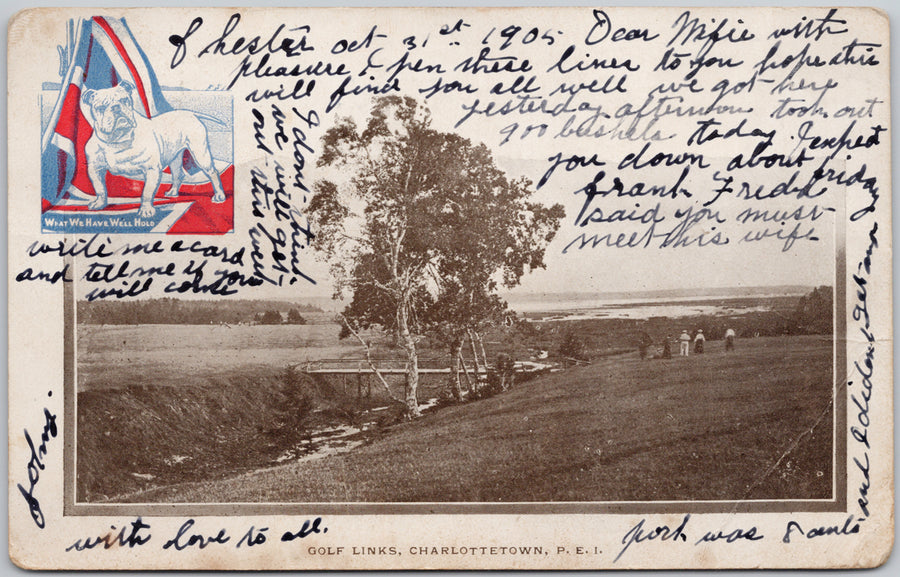 Chester oct 31st 1905 Dear Mifie with
pleasure I pen these lines to you hope this
will find you all well we got here
yesterday afternoon took out
900 bushels today. I expect
you down about friday
frank Freda
said you must
meet his wife
I dont think
we will get
out this week
write me a card
and tell me if you
will come
WHAT WE HAVE WE'LL HOLD
and I didont get any
pork was 8 cents
with love to all.
John.
GOLF LINKS, CHARLOTTETOWN, P. E. I.